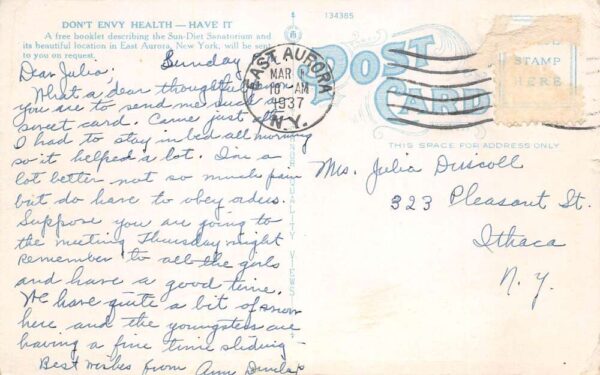 DON'T ENVY HEALTH — HAVE IT
A free booklet describing the Sun-Diet Sanatorium and
its beautiful location in East Aurora, New York, will be sent
to you on request.
134385
Sunday
Dear Julia.
What a dear thoughtful
you are to send me such a
sweet card. Came just
I had to stay in bed all morning
so it helped a lot. I'm a
lot better - not so much pain
but do have to obey orders.
Suppose you are going to
the meeting Thursday night
remember to all the girls
and have a good time.
We have quite a bit of snow
here and the youngsters are
having a fine time sliding -
Best wishes from Ann Dunlap
EAST AURORA
MAR
10 AM
1937
N.Y.
POST
CARD
STAMP
HERE
THIS SPACE FOR ADDRESS ONLY
QUALITY VIEWS
Mrs. Julia Driscoll
323 Pleasant St.
Ithaca
N.Y.